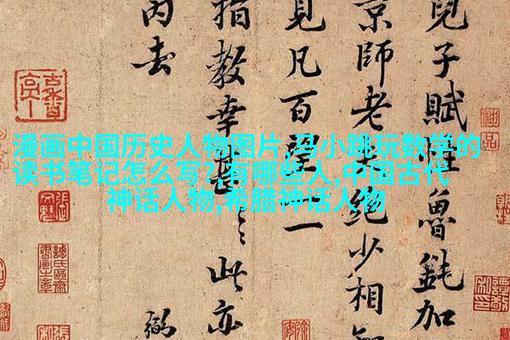 兒子賦性魯鈍加
京師老絕少相知
見凡百望一
指教幸甚此亦
丙去
漫画中国历史人物图片,马小跳玩数学的
读书笔记怎么写?有哪些人,中国古代
神话人物,希腊神话人物